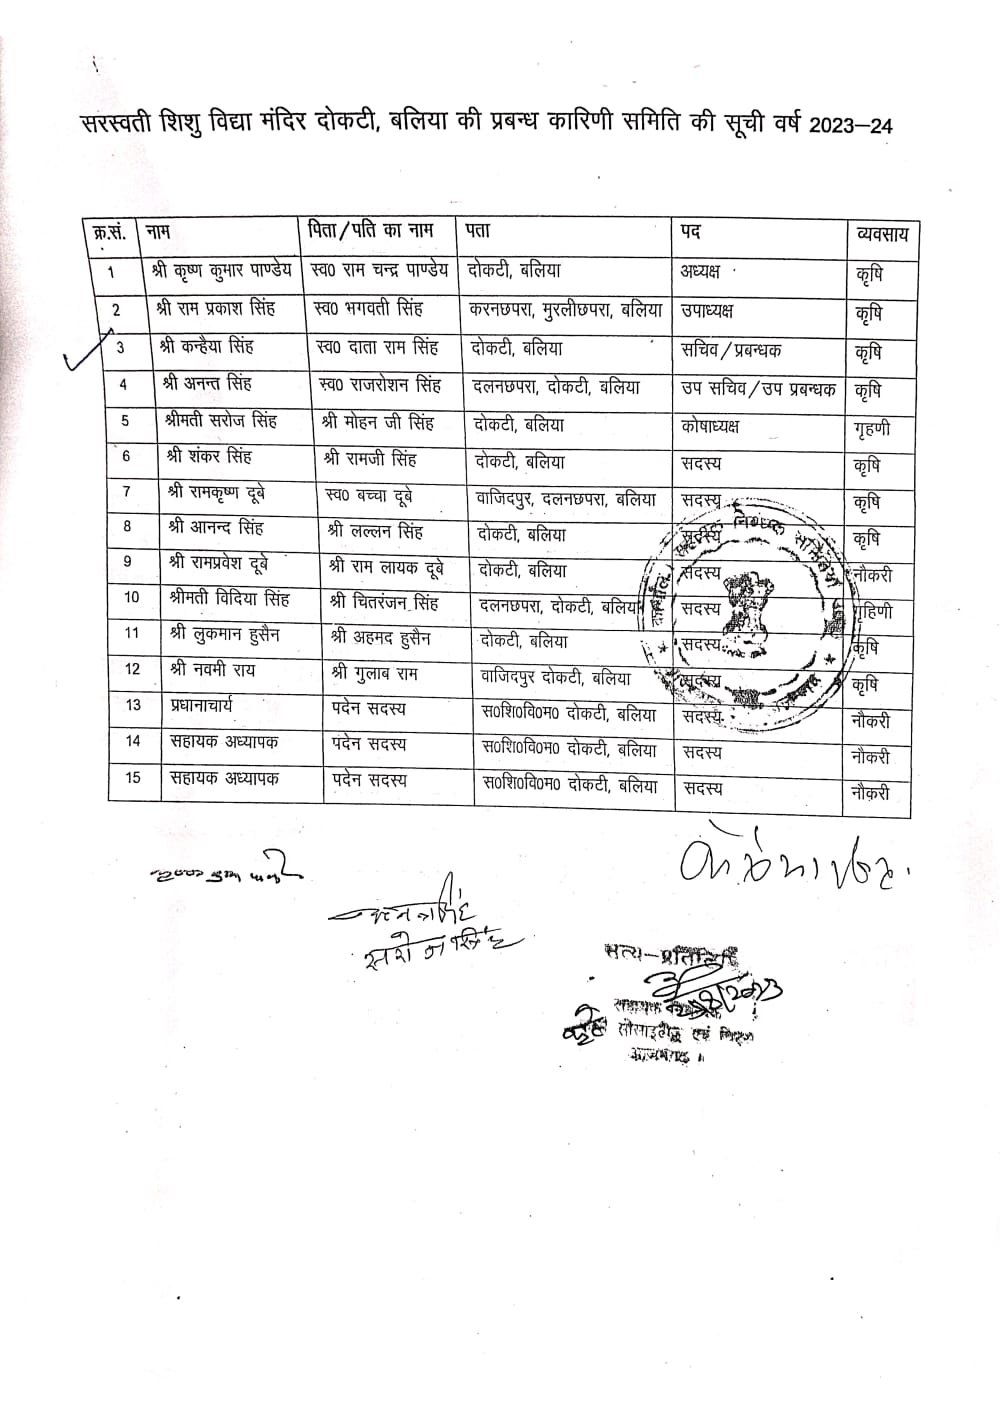 सरस्वती शिशु विद्या मंदिर दोकटी, बलिया की प्रबन्ध कारिणी समिति की सूची वर्ष 2023–24
क्र.सं. नाम पिता/पति का नाम पता पद व्यवसाय
1 श्री कृष्ण कुमार पाण्डेय स्व0 राम चन्द्र पाण्डेय दोकटी, बलिया अध्यक्ष कृषि
2 श्री राम प्रकाश सिंह स्व0 भगवती सिंह करनछपरा, मुरलीछपरा, बलिया उपाध्यक्ष कृषि
3 श्री कन्हैया सिंह स्व0 दाता राम सिंह दोकटी, बलिया सचिव/प्रबन्धक कृषि
4 श्री अनन्त सिंह स्व0 राजरोशन सिंह दलनछपरा, दोकटी, बलिया उप सचिव/उप प्रबन्धक कृषि
5 श्रीमती सरोज सिंह श्री मोहन जी सिंह दोकटी, बलिया कोषाध्यक्ष गृहणी
6 श्री शंकर सिंह श्री रामजी सिंह दोकटी, बलिया सदस्य कृषि
7 श्री रामकृष्ण दूबे स्व0 बच्चा दूबे वाजिदपुर, दलनछपरा, बलिया सदस्य कृषि
8 श्री आनन्द सिंह श्री लल्लन सिंह दोकटी, बलिया सदस्य कृषि
9 श्री रामप्रवेश दूबे श्री राम लायक दूबे दोकटी, बलिया सदस्य नौकरी
10 श्रीमती विदिया सिंह श्री चितरंजन सिंह दलनछपरा, दोकटी, बलिया सदस्य गृहिणी
11 श्री लुकमान हुसैन श्री अहमद हुसैन दोकटी, बलिया सदस्य कृषि
12 श्री नवमी राय श्री गुलाब राम वाजिदपुर दोकटी, बलिया सदस्य कृषि
13 प्रधानाचार्य पदेन सदस्य स0शि0वि0म0 दोकटी, बलिया सदस्य नौकरी
14 सहायक अध्यापक पदेन सदस्य स0शि0वि0म0 दोकटी, बलिया सदस्य नौकरी
15 सहायक अध्यापक पदेन सदस्य स0शि0वि0म0 दोकटी, बलिया सदस्य नौकरी
सरोज सिंह
सत्य-प्रतिलिपि
सहायक
सोसाइटीज एवं
आजमगढ़ ।